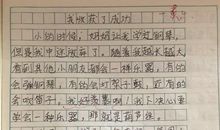 我收获了成功
小的时候，妈妈让我学过钢琴，
但是我中途放弃了。随着我越来越大
看到其他小朋友都会一种乐器，有的
会弹钢琴，有的会打架子鼓，还有的
会吹笛子。我好羡慕啊！我下决心重
学名一种乐器，那就是葫芦丝。